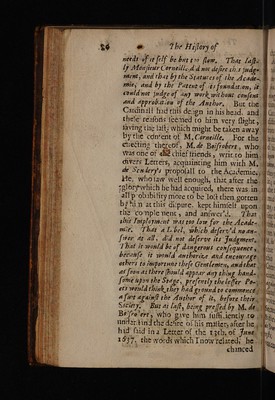 24 The History of
needs of it self be but too slow. That last-
ly Monsieur Corneille, did not desire this judg-
ment, and that by the Statutes of the Acade-
mie, and by the Patent of its foundation, it
could not judge of any work without consent
and approbation of the Author. But the
Cardinall had this design in his head, and
these reasons seemed to him very slight,
saving the last, which might be taken away
by the consent of M. Corneille. For the
effecting thereof, M. de Boisrobert, who
was one of his chief friends, writ to him
divers Letters, acquainting him with M.
de Scudery's proposall to the Academie.
He, who saw well enough, that after the
glory which he had acquired, there was in
all probability more to be lost then gotten
by him at this dispute, kept himself upon
the complement, and answer'd, That
this Imployment was too low for the Acade-
mie. That a Libel, which deserv'd no an-
swer at all, did not deserve its Judgment.
That it would be of dangerous consequence,
because it would authorize and encourage
others to importune those Gentlemen, and that
as soon as there should appear any thing hand-
some upon the Stage, presently the lesser Po-
ets would think they had ground to commence
a suit against the Author of it, before their
Society. But at last, being pressed by M. de
Boisrobert, who give him sufficiently to
understand the desire of his master, after he
had said in a Letter of the 13th. of June
1637. the words which I now related, he
chanced